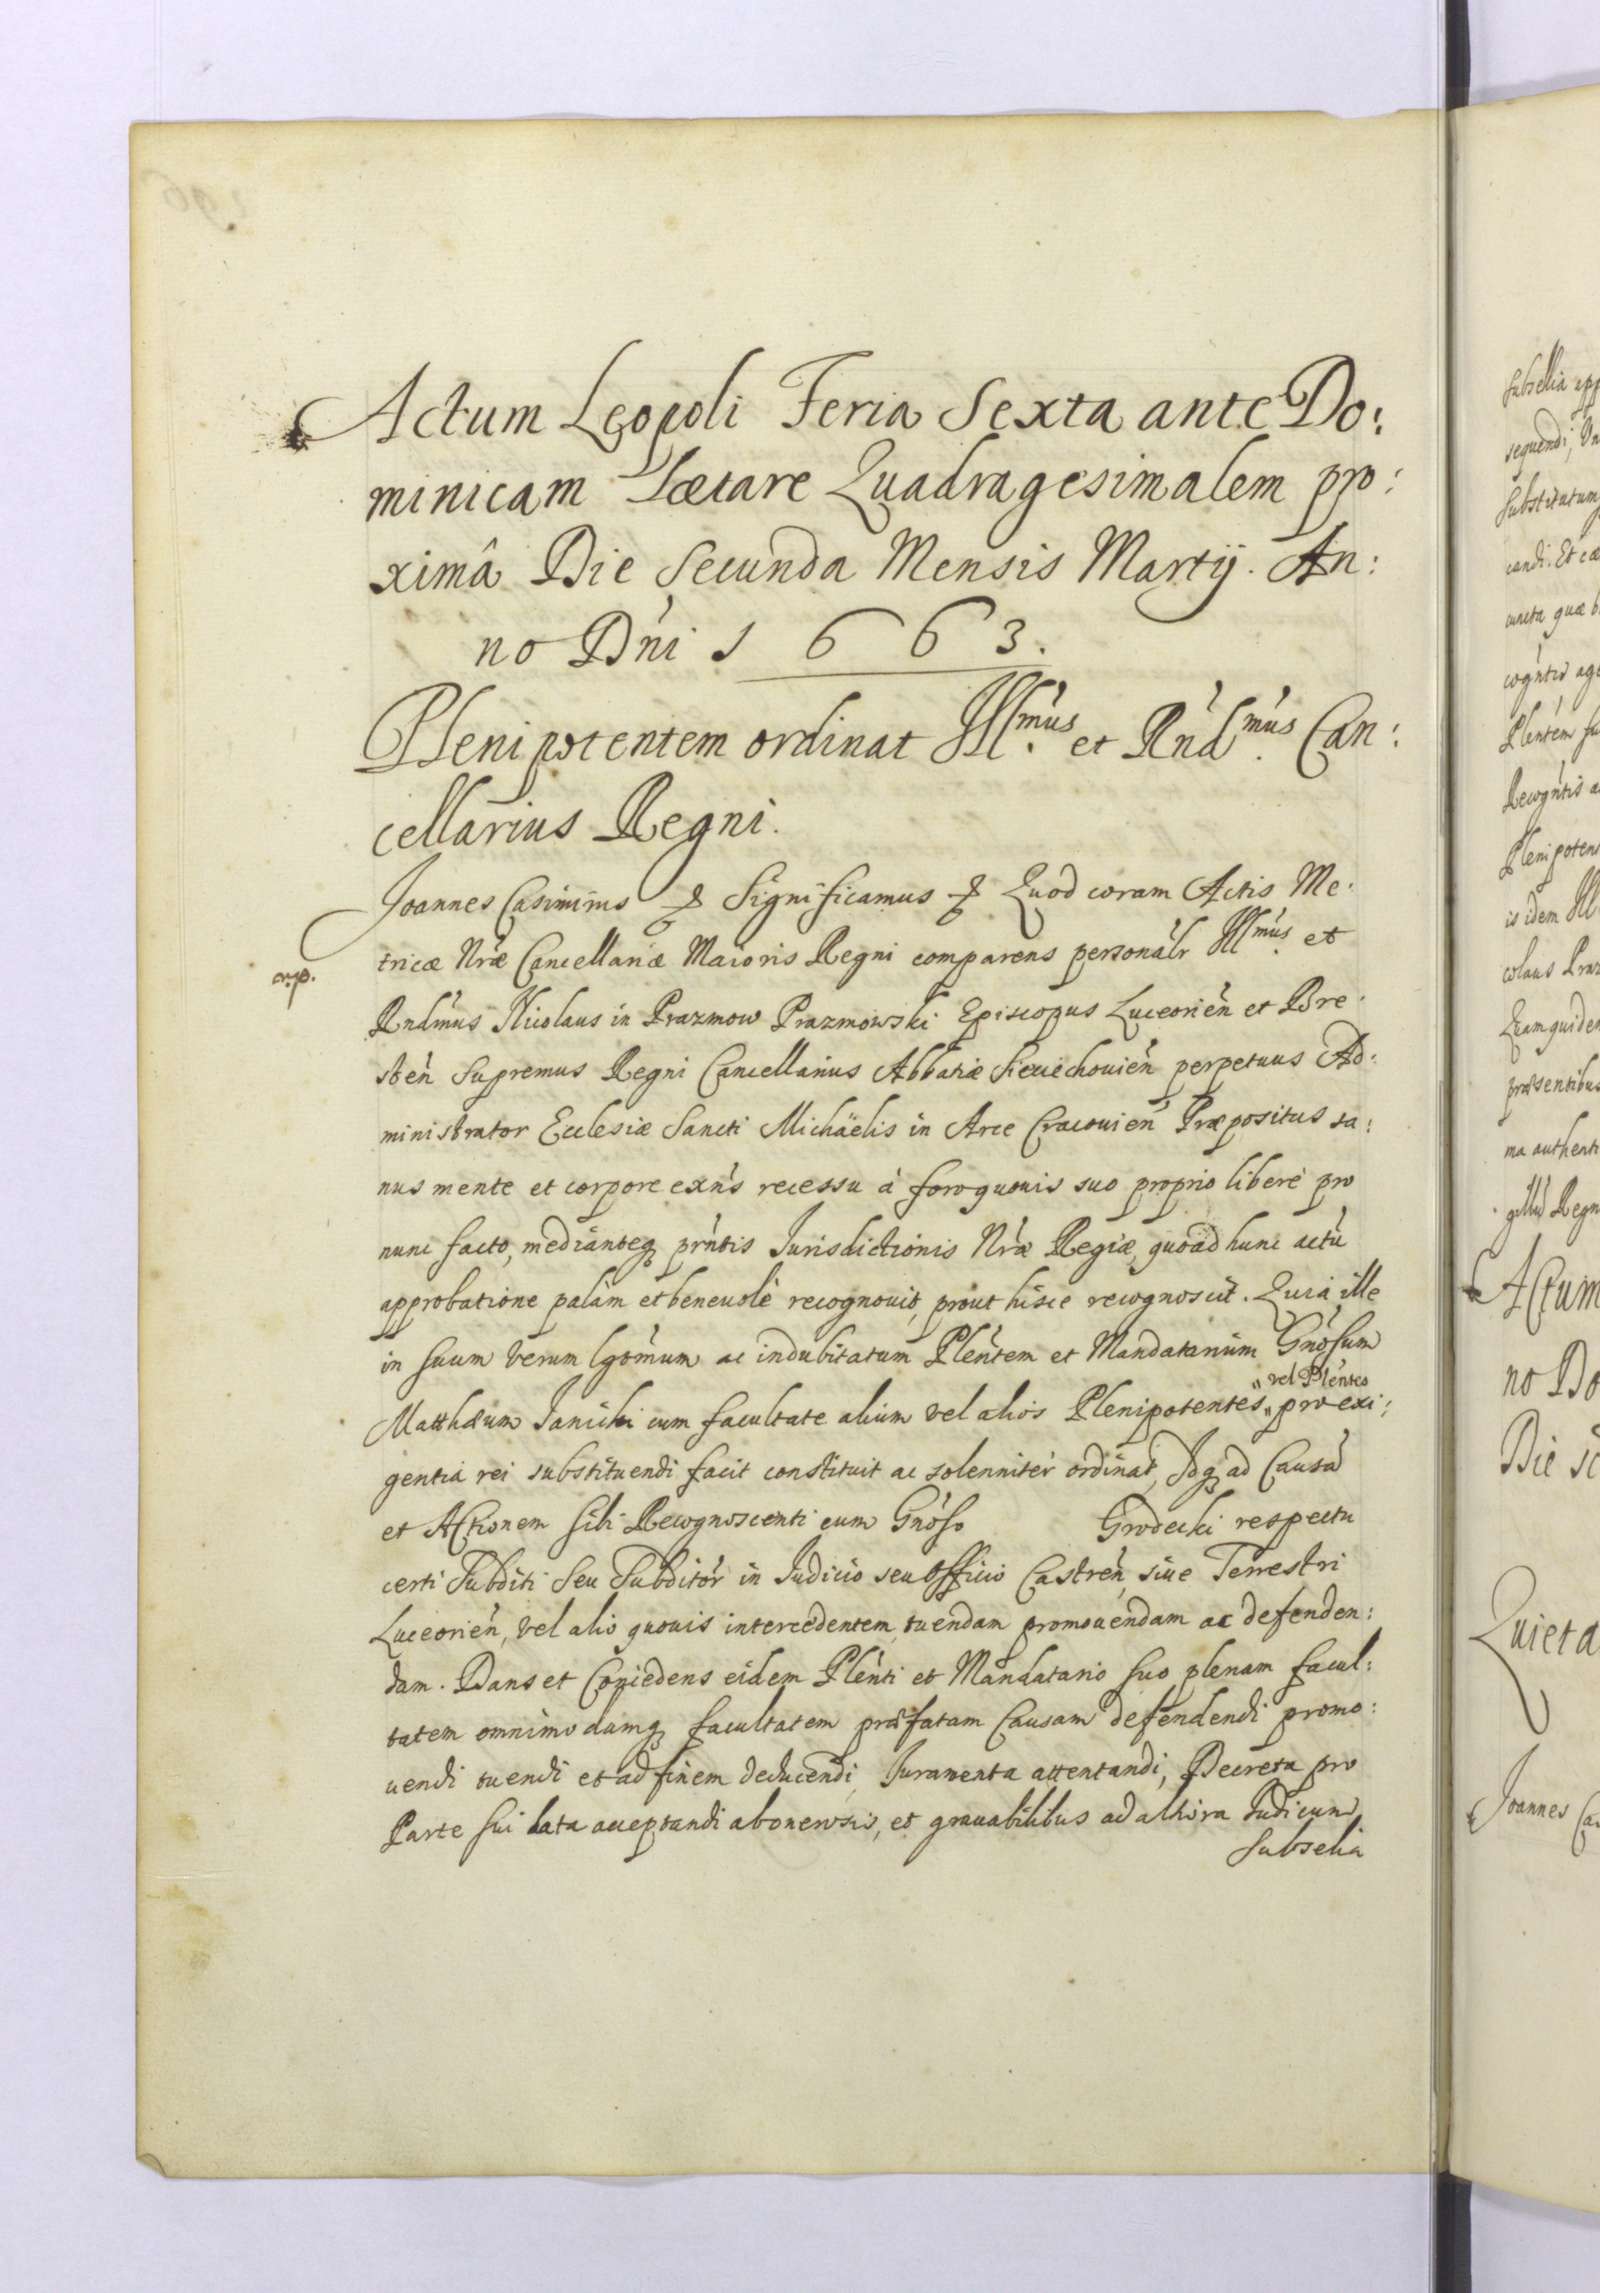 Actum Leopoli Feria Sexta ante Do:
minicam Lætare Quadragesimalem pro:
ximâ Die Secunda Mensis Martij. An:
no Dńi 1663.
Plenipotentem ordinat Illmús et Rńdmús Can:
cellarius Regni.
Joannes Casimirus & Significamus & Quod coram Actis Me:
tricæ Nræ Cancellariæ Maioris Regni comparens personalr Illmús et
Rndmús Nicolaus in Prazmow Prazmowski Episcopus Luceorień et Bre:
steń Supremus Regni Cancellarius Abbatiæ Sieciechouień perpetuus Ad:
ministrator Ecclesiæ Sancti Michäelis in Arce Cracouień Præpositus sa:
nus mente et corpore exńs recessu à foro quouis suo proprio liberè pro
nunc facto, medianteq prńtis Jurisdictionis Nræ Regiæ, quoad hunc actū
approbatione palàm et beneuolè recognouit, prout hisce recognoscit. Quia ille
in suum verum lgtómum ac indubitatum Pleńtem et Mandatarium Gnósum
"vel Pléntes
Matthæum Janicki cum facultate alium vel alios Plenipotentes" pro exi:
gentia rei substituendi facit constituit ac solenniter ordinat, Idq ad Causā
et Actionem sibi Recognoscenti cum Gnóso Grodecki respectu
certi Subditi seu Subditór in Judicio seu Officio Castreń, siue Terrestri
Luceorień, vel alio quouis intercedentem, tuendam promouendam ac defenden:
dam. Dans et Concedens eidem Pleńti et Mandatario suo plenam facul:
tatem omnimodamq facultatem præfatam Causam defendendi promo:
uendi tuendi et ad finem deducendi, Juramenta attentandi, Decreta pro
Parte sui lata acceptandi ab onerosis, et grauabilibus ad altiora Judicum
Subselia
mp.